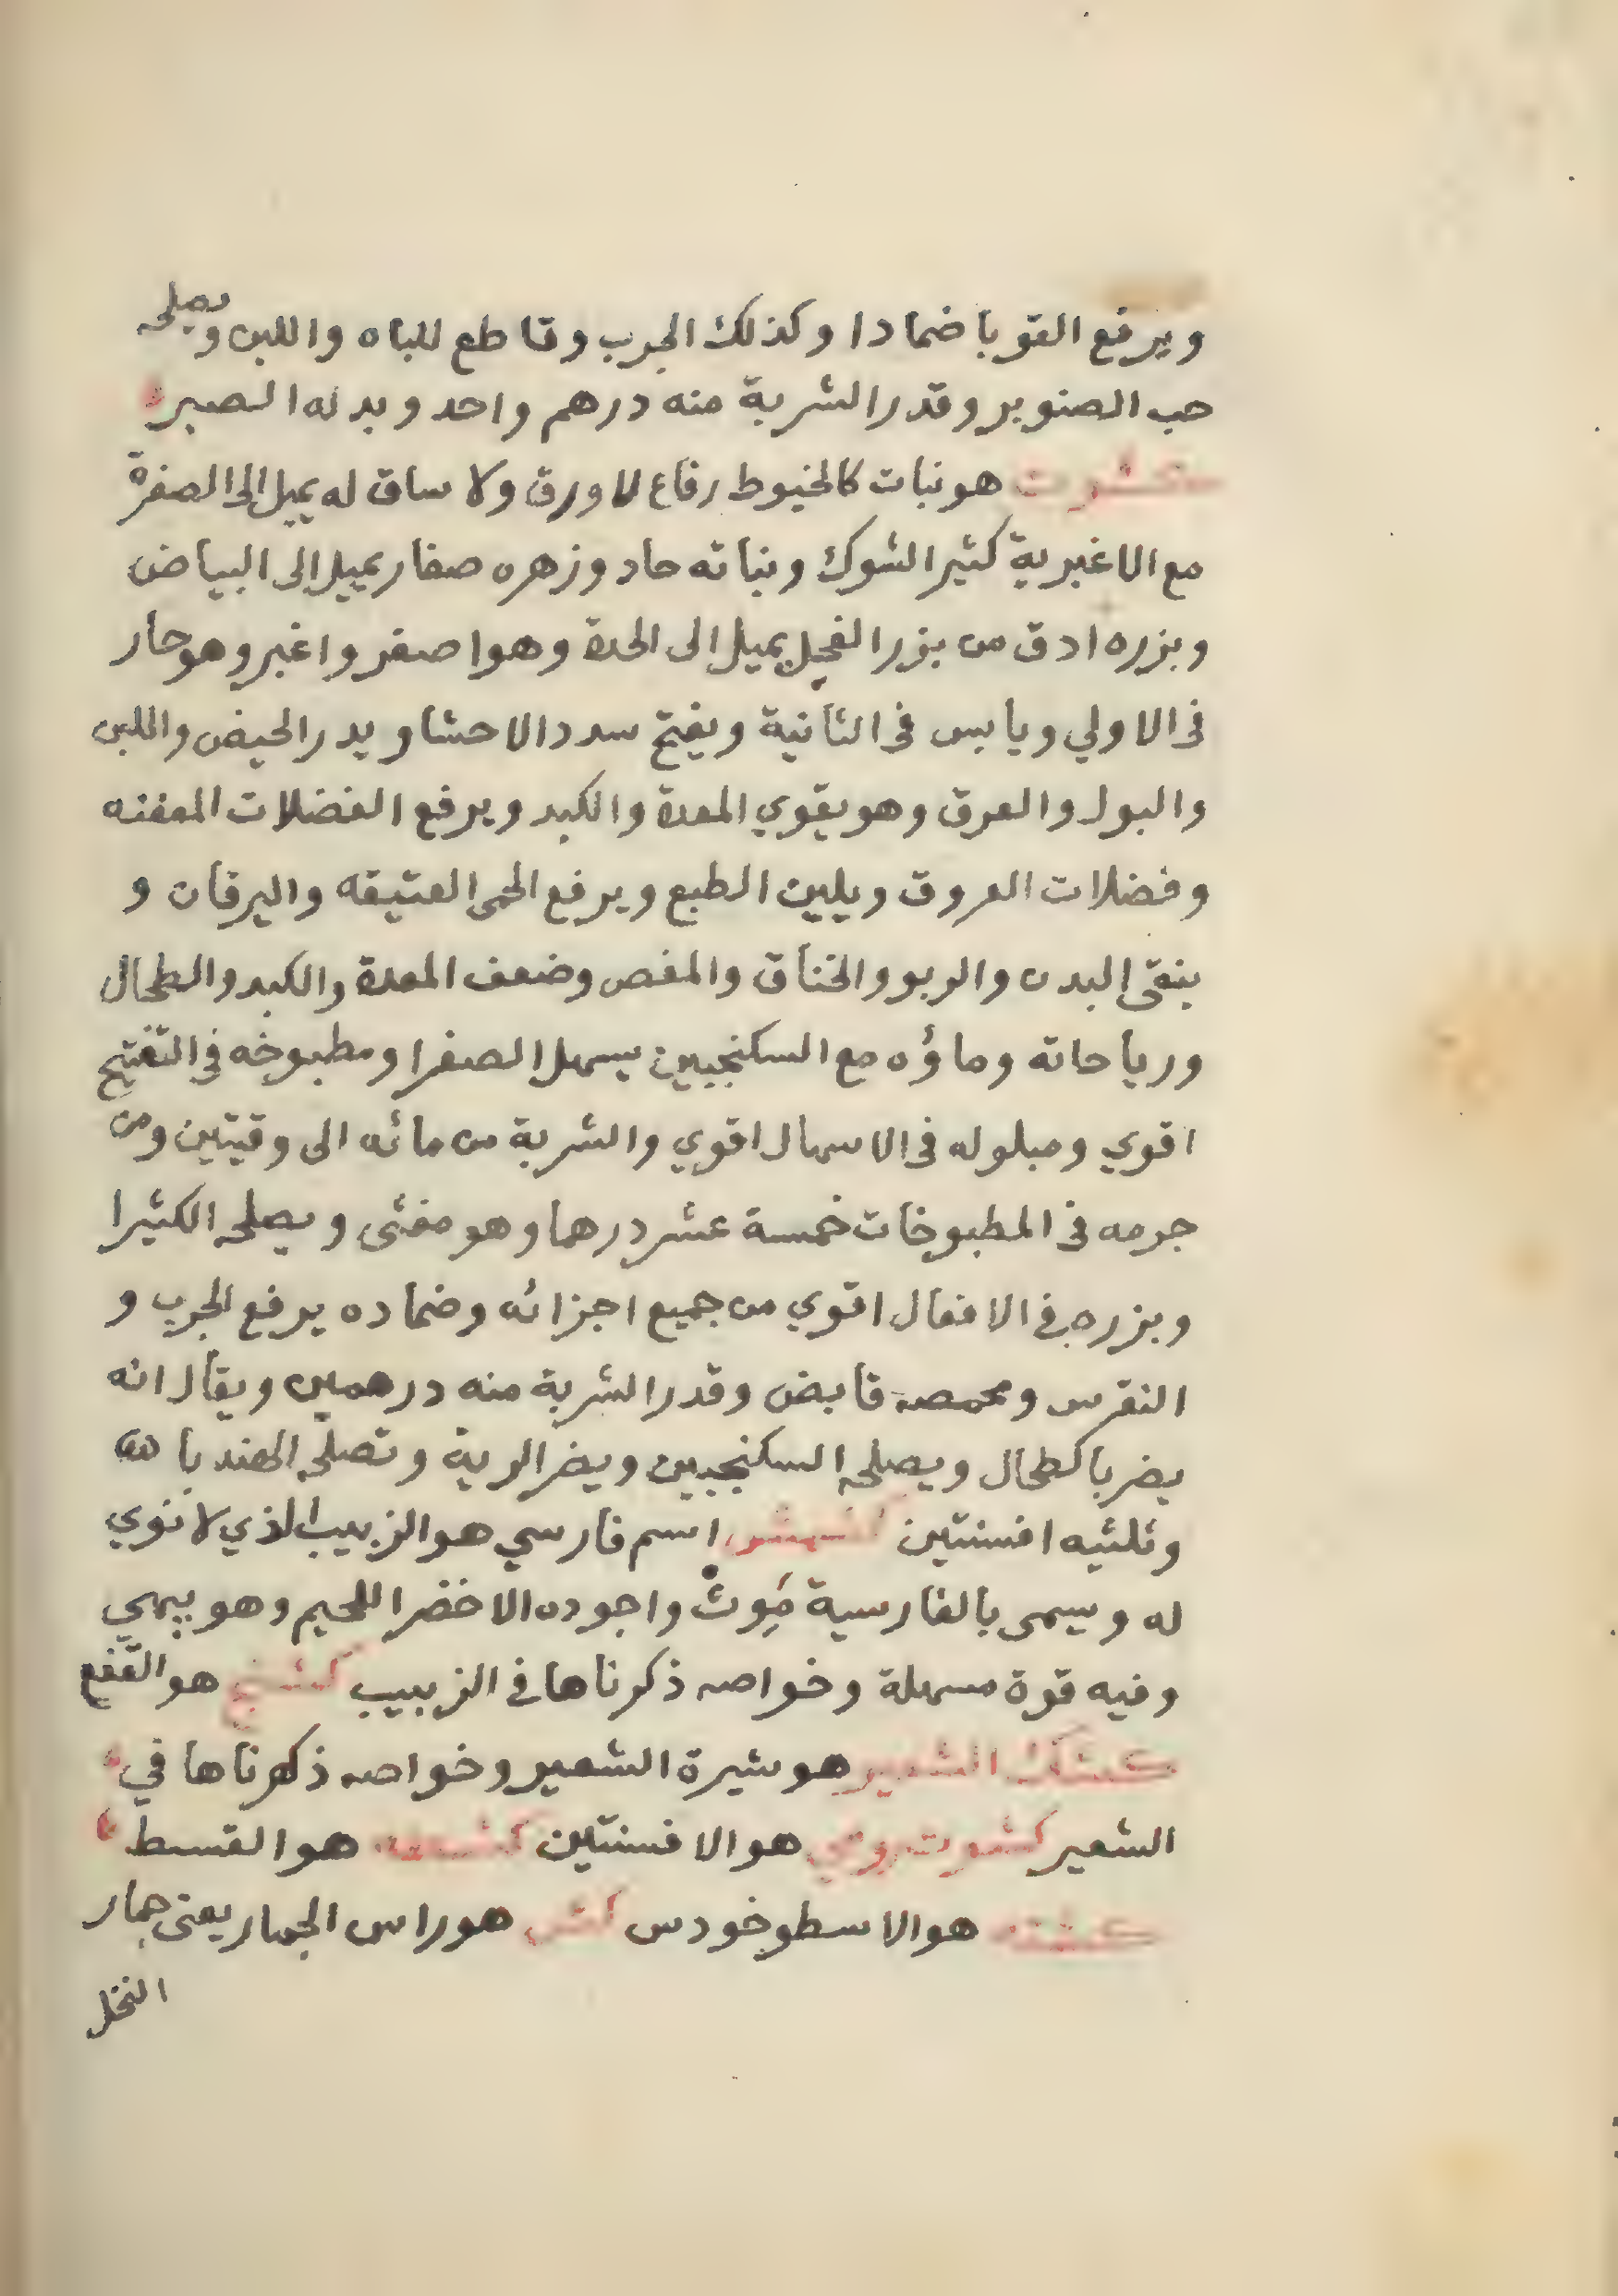 ويرفع القوبا ضمادا وكذلك الجرب وقاطع للباه واللبن ويصلحه
حب الصنوبر وقدر الشربة منه درهم واحد وبدله الصبر
كشوت هو نبات كالخيوط رفاع لا ورق ولا ساق له يميل الى الصفرة
مع الاغبرية كثير الشوك ونباته حاد وزهره صغار يميل الى البياض
وبزره ادق من بزر الفجيل يميل الى الحدة وهو اصفر واغبر وهو حار
فى الاولي ويابس فى الثانية ويفتح سدد الاحشا ويدر الحيض واللبن
والبول والعرق وهو يقوي المعدة والكبد ويرفع الفضلات المعفنه
وفضلات العروق ويلين الطبع ويرفع الحمى العتيقه واليرقان و
ينقى البدن والربو والخناق والمغص وضعف المعدة والكبد والطحال
ورياحاته وماؤه مع السكنجبين يسهل الصفرا ومطبوخه في التفتيح
اقوي ومبلوله فى الاسهال اقوي والشربة من مائه الى وقيتين ومن
جرمه فى المطبوخات خمسة عشر درهما وهو مغثى ويصلحه الكثيرا
وبزره في الافعال اقوي من جميع اجزائه وضماده يرفع الجرب و
النقرس ومحمصه قابض وقدر الشربة منه درهمين ويقال انه
يضر بالطحال ويصلحه السكنجبين ويضر الرية وتصلحه الهندبا
وثلثيه افسنتين كشمش اسم فارسي هو الزبيب الذي لا نوي
له ويسمى بالفارسية واجوده الاخضر اللحيم وهو يبهي
وفيه قوة مسهلة وخواصه ذكرناها فى الزبيب كشنج هو القفع
كشك الشعير هو شيرة الشعير وخواصه ذكرناها في
الشعير كشوت رومي هو الافسنتين هو القسط
هو الاسطوخودس كشن هو راس الجمار يعنى جمار
النخل